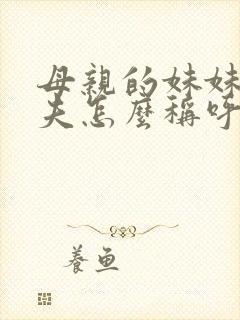 母親的妹妹
夫怎麼稱呼
養魚